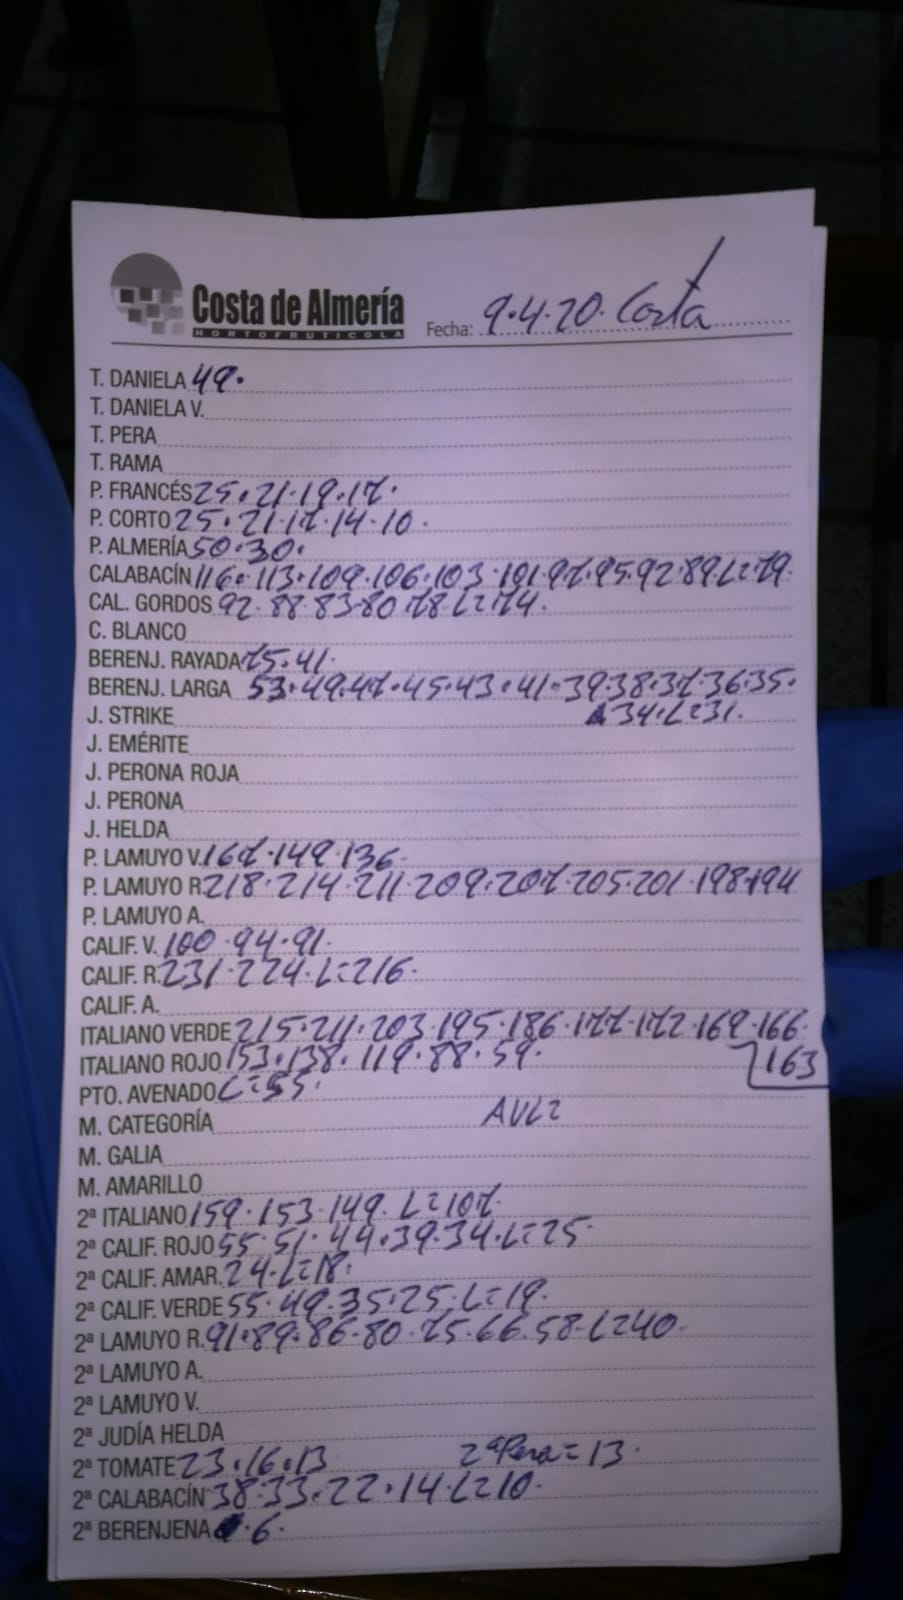 Costa de Almería
HORTOFRUTICOLA
Fecha: 9.4.20. Costa
T. DANIELA 49.
T. DANIELA V.
T. PERA
T. RAMA
P. FRANCÉS 25.21.19.17.
P. CORTO 25.21.17.14.10.
P. ALMERÍA 50.30.
CALABACÍN 116.113.109.106.103.101.97.95.92.89 L=79.
CAL. GORDOS 92.88.83.80.78 L=74.
C. BLANCO
BERENJ. RAYADA 75.41.
BERENJ. LARGA 53.49.47.45.43.41.39.38.37.36.35.
J. STRIKE 34.L=31.
J. EMÉRITE
J. PERONA ROJA
J. PERONA
J. HELDA
P. LAMUYO V. 167.149.136.
P. LAMUYO R. 218.214.211.209.207.205.201.198.194
P. LAMUYO A.
CALIF. V. 100.94.91.
CALIF. R. 231.224.L=216.
CALIF. A.
ITALIANO VERDE 215.211.203.195.186.177.172.169.166.
ITALIANO ROJO 153.138.119.88.59. 163
PTO. AVENADO L=55.
M. CATEGORÍA AVL=
M. GALIA
M. AMARILLO
2ª ITALIANO 159.153.149.L=107.
2ª CALIF. ROJO 55.51.44.39.34.L=25.
2ª CALIF. AMAR. 24.L=18.
2ª CALIF. VERDE 55.49.35.25.L=19.
2ª LAMUYO R. 91.89.86.80.75.66.58.L=40.
2ª LAMUYO A.
2ª LAMUYO V.
2ª JUDÍA HELDA
2ª TOMATE 23.16.13 2ª Pera=13.
2ª CALABACÍN 38.33.22.14.L=10.
2ª BERENJENA .6.